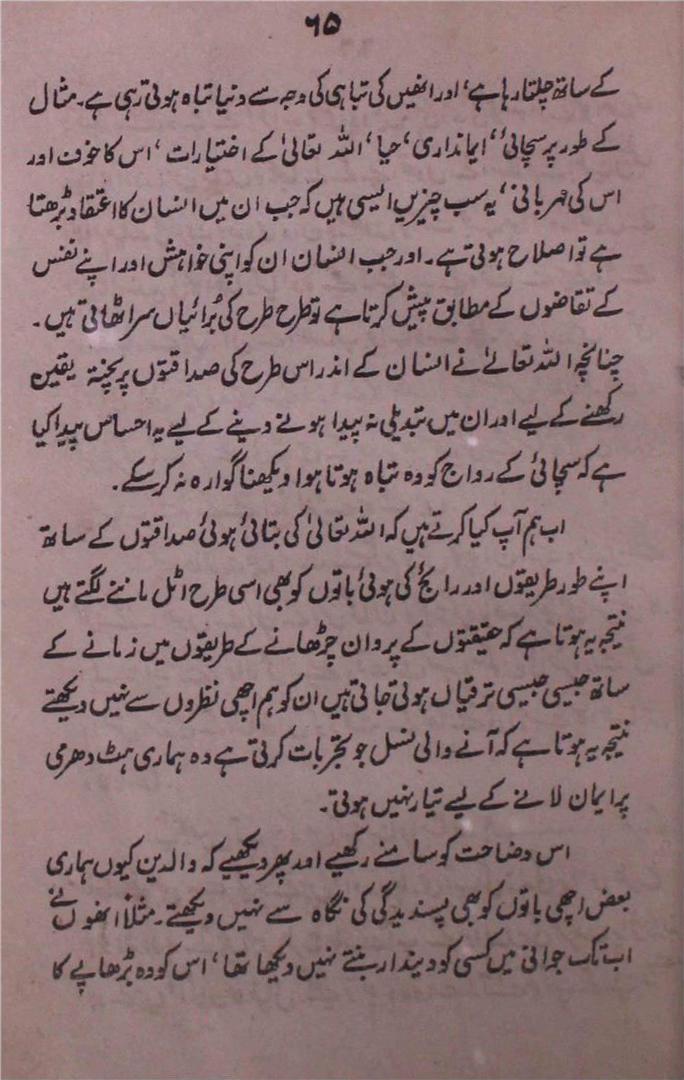 ۶۵
کے ساتھ چلتا رہا ہے، اور انھیں کی تباہی کی وجہ سے دنیا تباہ ہوتی رہی ہے۔ مثال
کے طور پر سچائی، ایمانداری، حیا، اللہ تعالیٰ کے اختیارات، اس کا خوف اور
اس کی مہربانی، یہ سب چیزیں ایسی ہیں کہ جب ان میں انسان کا اعتقاد بڑھتا
ہے تو اصلاح ہوتی ہے۔ اور جب انسان ان کو اپنی خواہش اور اپنے نفس
کے تقاضوں کے مطابق پیش کرتا ہے تو طرح طرح کی بُرائیاں سر اٹھاتی ہیں۔
چنانچہ اللہ تعالےٰ نے انسان کے اندر اس طرح کی صداقتوں پر پختہ یقین
رکھنے کے لیے اور ان میں تبدیلی نہ پیدا ہونے دینے کے لیے یہ احساس پیدا کیا
ہے کہ سچائی کے رواج کو وہ تباہ ہوتا ہوا دیکھنا گوارہ نہ کر سکے۔
اب ہم آپ کیا کرتے ہیں کہ اللہ تعالیٰ کی بتائی ہوئی صداقتوں کے ساتھ
اپنے طور طریقوں اور رائج کی ہوئی باتوں کو بھی اسی طرح اٹل ماننے لگتے ہیں
نتیجہ یہ ہوتا ہے کہ حقیقتوں کے پروان چڑھانے کے طریقوں میں زمانے کے
ساتھ جیسی جیسی ترقیاں ہوتی جاتی ہیں ان کو ہم اچھی نظروں سے نہیں دیکھتے
نتیجہ یہ ہوتا ہے کہ آنے والی نسل جو تجربات کرتی ہے وہ ہماری ہٹ دھرمی
پر ایمان لانے کے لیے تیار نہیں ہوتی۔
اس وضاحت کو سامنے رکھیے اور پھر دیکھیے کہ والدین کیوں ہماری
بعض اچھی باتوں کو بھی پسندیدگی کی نگاہ سے نہیں دیکھتے۔ مثلاً انھوں نے
اب تک جوانی میں کسی کو دیندار بنتے نہیں دیکھا تھا، اس کو وہ بڑھاپے کا